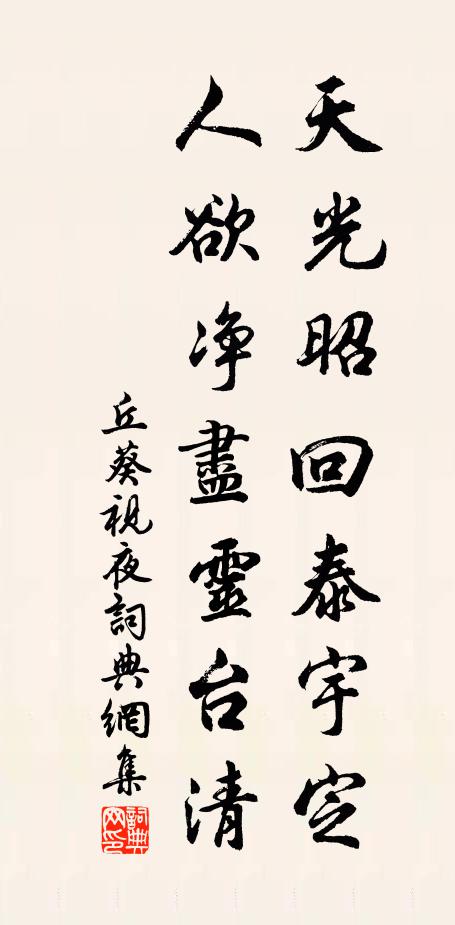 天光昭回泰宇定
人欲净盡靈台清
丘葵視夜詞典網集
詞典網印